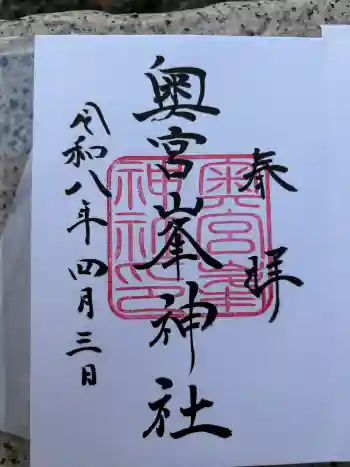 奉拝
奥宮峯神社
令和八年四月三日
奥宮峯
神社印